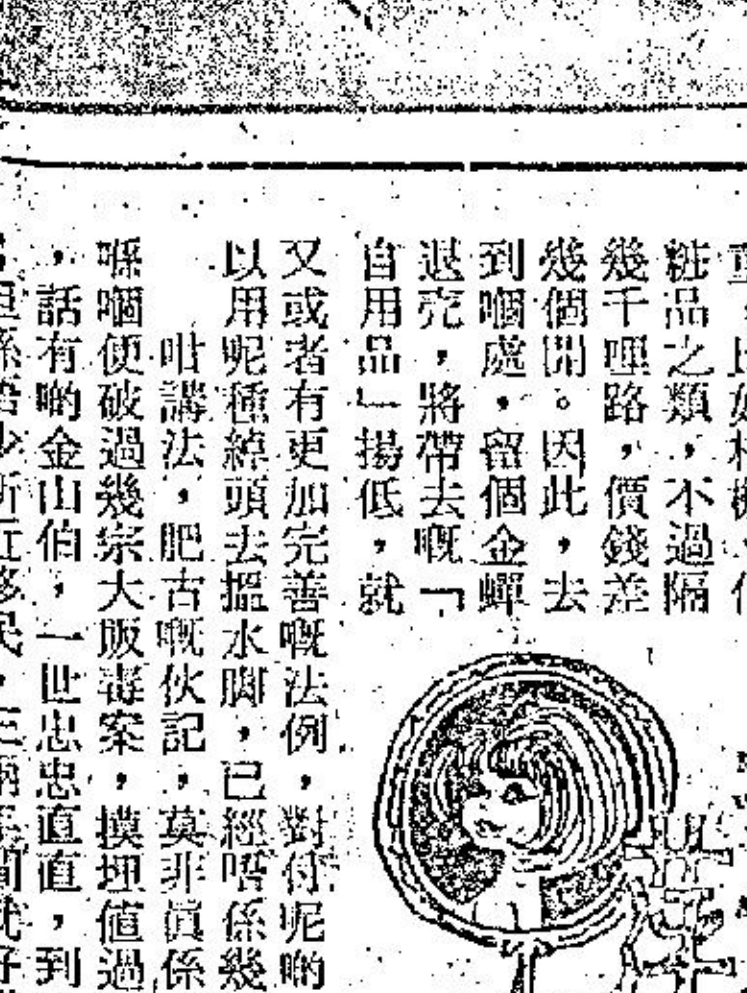 粧品之類，不過隔
幾千哩路，價錢差
幾個開。因此，去
到嗰處，留個金蟬
退壳，將帶去嘅「
自用品」揚低，就
又或者有更加完善嘅法例，對付呢啲
以用呢種綽頭去搵水脚，已經唔係幾
咁講法，肥古嘅伙記，莫非眞係
喺嗰便破過幾宗大販毒案，摸埋値過
，話有啲金山伯，一世忠忠直直，到